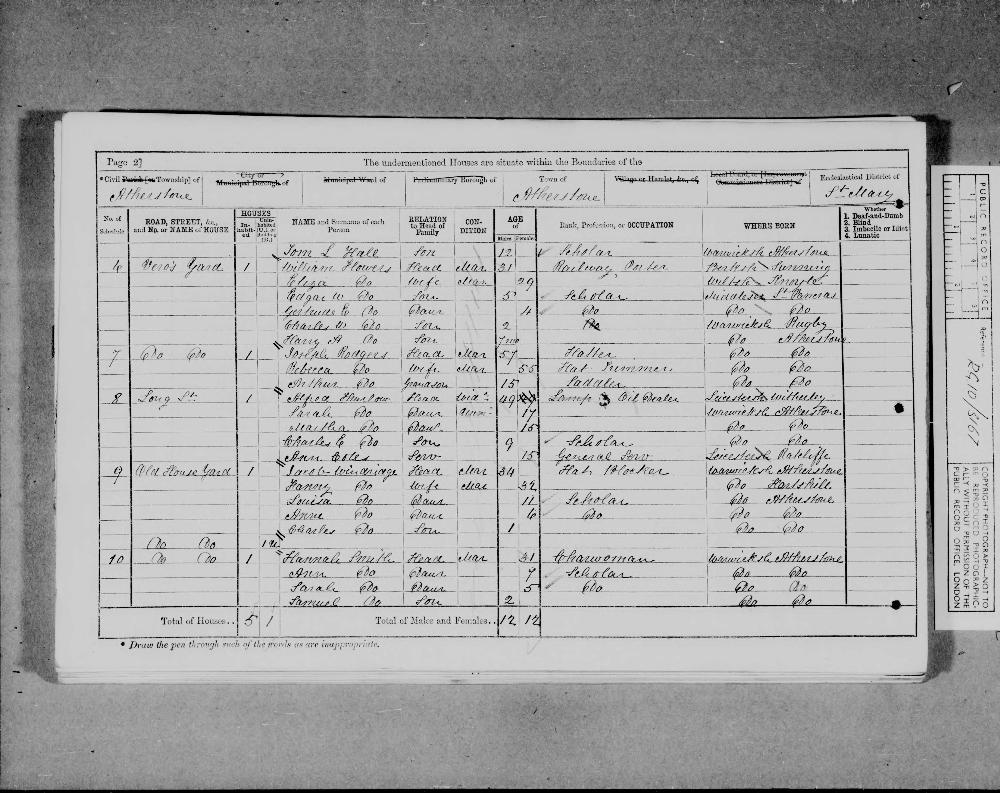 Page 27 The undermentioned Houses are situate within the Boundaries of the
* Civil Parish [or Township] of City or Municipal Borough of Municipal Ward of Parliamentary Borough of Town of Village or Hamlet, &c., of Local Board, or [Improvement Commissioners District] of Ecclesiastical District of
Atherstone Atherstone St Mary
No. of Schedule ROAD, STREET, &c., and No. or NAME of HOUSE HOUSES Inhabited Uninhabited (U.), or Building (B.) NAME and Surname of each Person RELATION to Head of Family CONDITION AGE of Males Females Rank, Profession, or OCCUPATION WHERE BORN Whether 1. Deaf-and-Dumb 2. Blind 3. Imbecile or Idiot 4. Lunatic
Tom L Hall Son 12 Scholar Warwicksh Atherstone
6 Vero's Yard 1 William Flowers Head Mar 31 Railway Porter Berksh Sunning
Eliza Do Wife Mar 29 Wiltsh Knoyle
Edgar W Do Son 5 Scholar Middlesex St Pancras
Gertrude E Do Daur 4 Do Do Do
Charles W Do Son 2 Warwicksh Rugby
Harry A Do Son 7 mo Do Atherstone
7 Do Do 1 Joseph Rodgers Head Mar 57 Hatter Do Do
Rebecca Do Wife Mar 55 Hat Trimmer Do Do
Arthur Do Grandson 15 Saddler Do Do
8 Long St 1 Alfred Harlow Head Widr 49 Lamp & Oil Dealer Leicestersh Witherley
Sarah Do Daur Unmr 17 Warwicksh Atherstone
Martha Do Daur 15 Do Do
Charles E Do Son 9 Scholar Do Do
Ann Coles Serv 15 General Serv Leicestersh Ratcliffe
9 Old House Yard 1 Jacob Windridge Head Mar 34 Hat Blocker Warwicksh Atherstone
Fanny Do Wife Mar 32 Do Hartshill
Louisa Do Daur 11 Scholar Do Atherstone
Anne Do Daur 6 Do Do Do
Charles Do Son 1 Do Do
Do Do 1 U
10 Do Do 1 Hannah Smith Head Mar 31 Charwoman Warwicksh Atherstone
Ann Do Daur 9 Scholar Do Do
Sarah Do Daur 5 Do Do Do
Samuel Do Son 2 Do Do
Total of Houses.. 5 1 Total of Males and Females.. 12 12
* Draw the pen through such of the words as are inappropriate.
PUBLIC RECORD OFFICE
Reference:-
RG10/3167
COPYRIGHT PHOTOGRAPH—NOT TO BE REPRODUCED PHOTOGRAPHICALLY WITHOUT PERMISSION OF THE PUBLIC RECORD OFFICE, LONDON